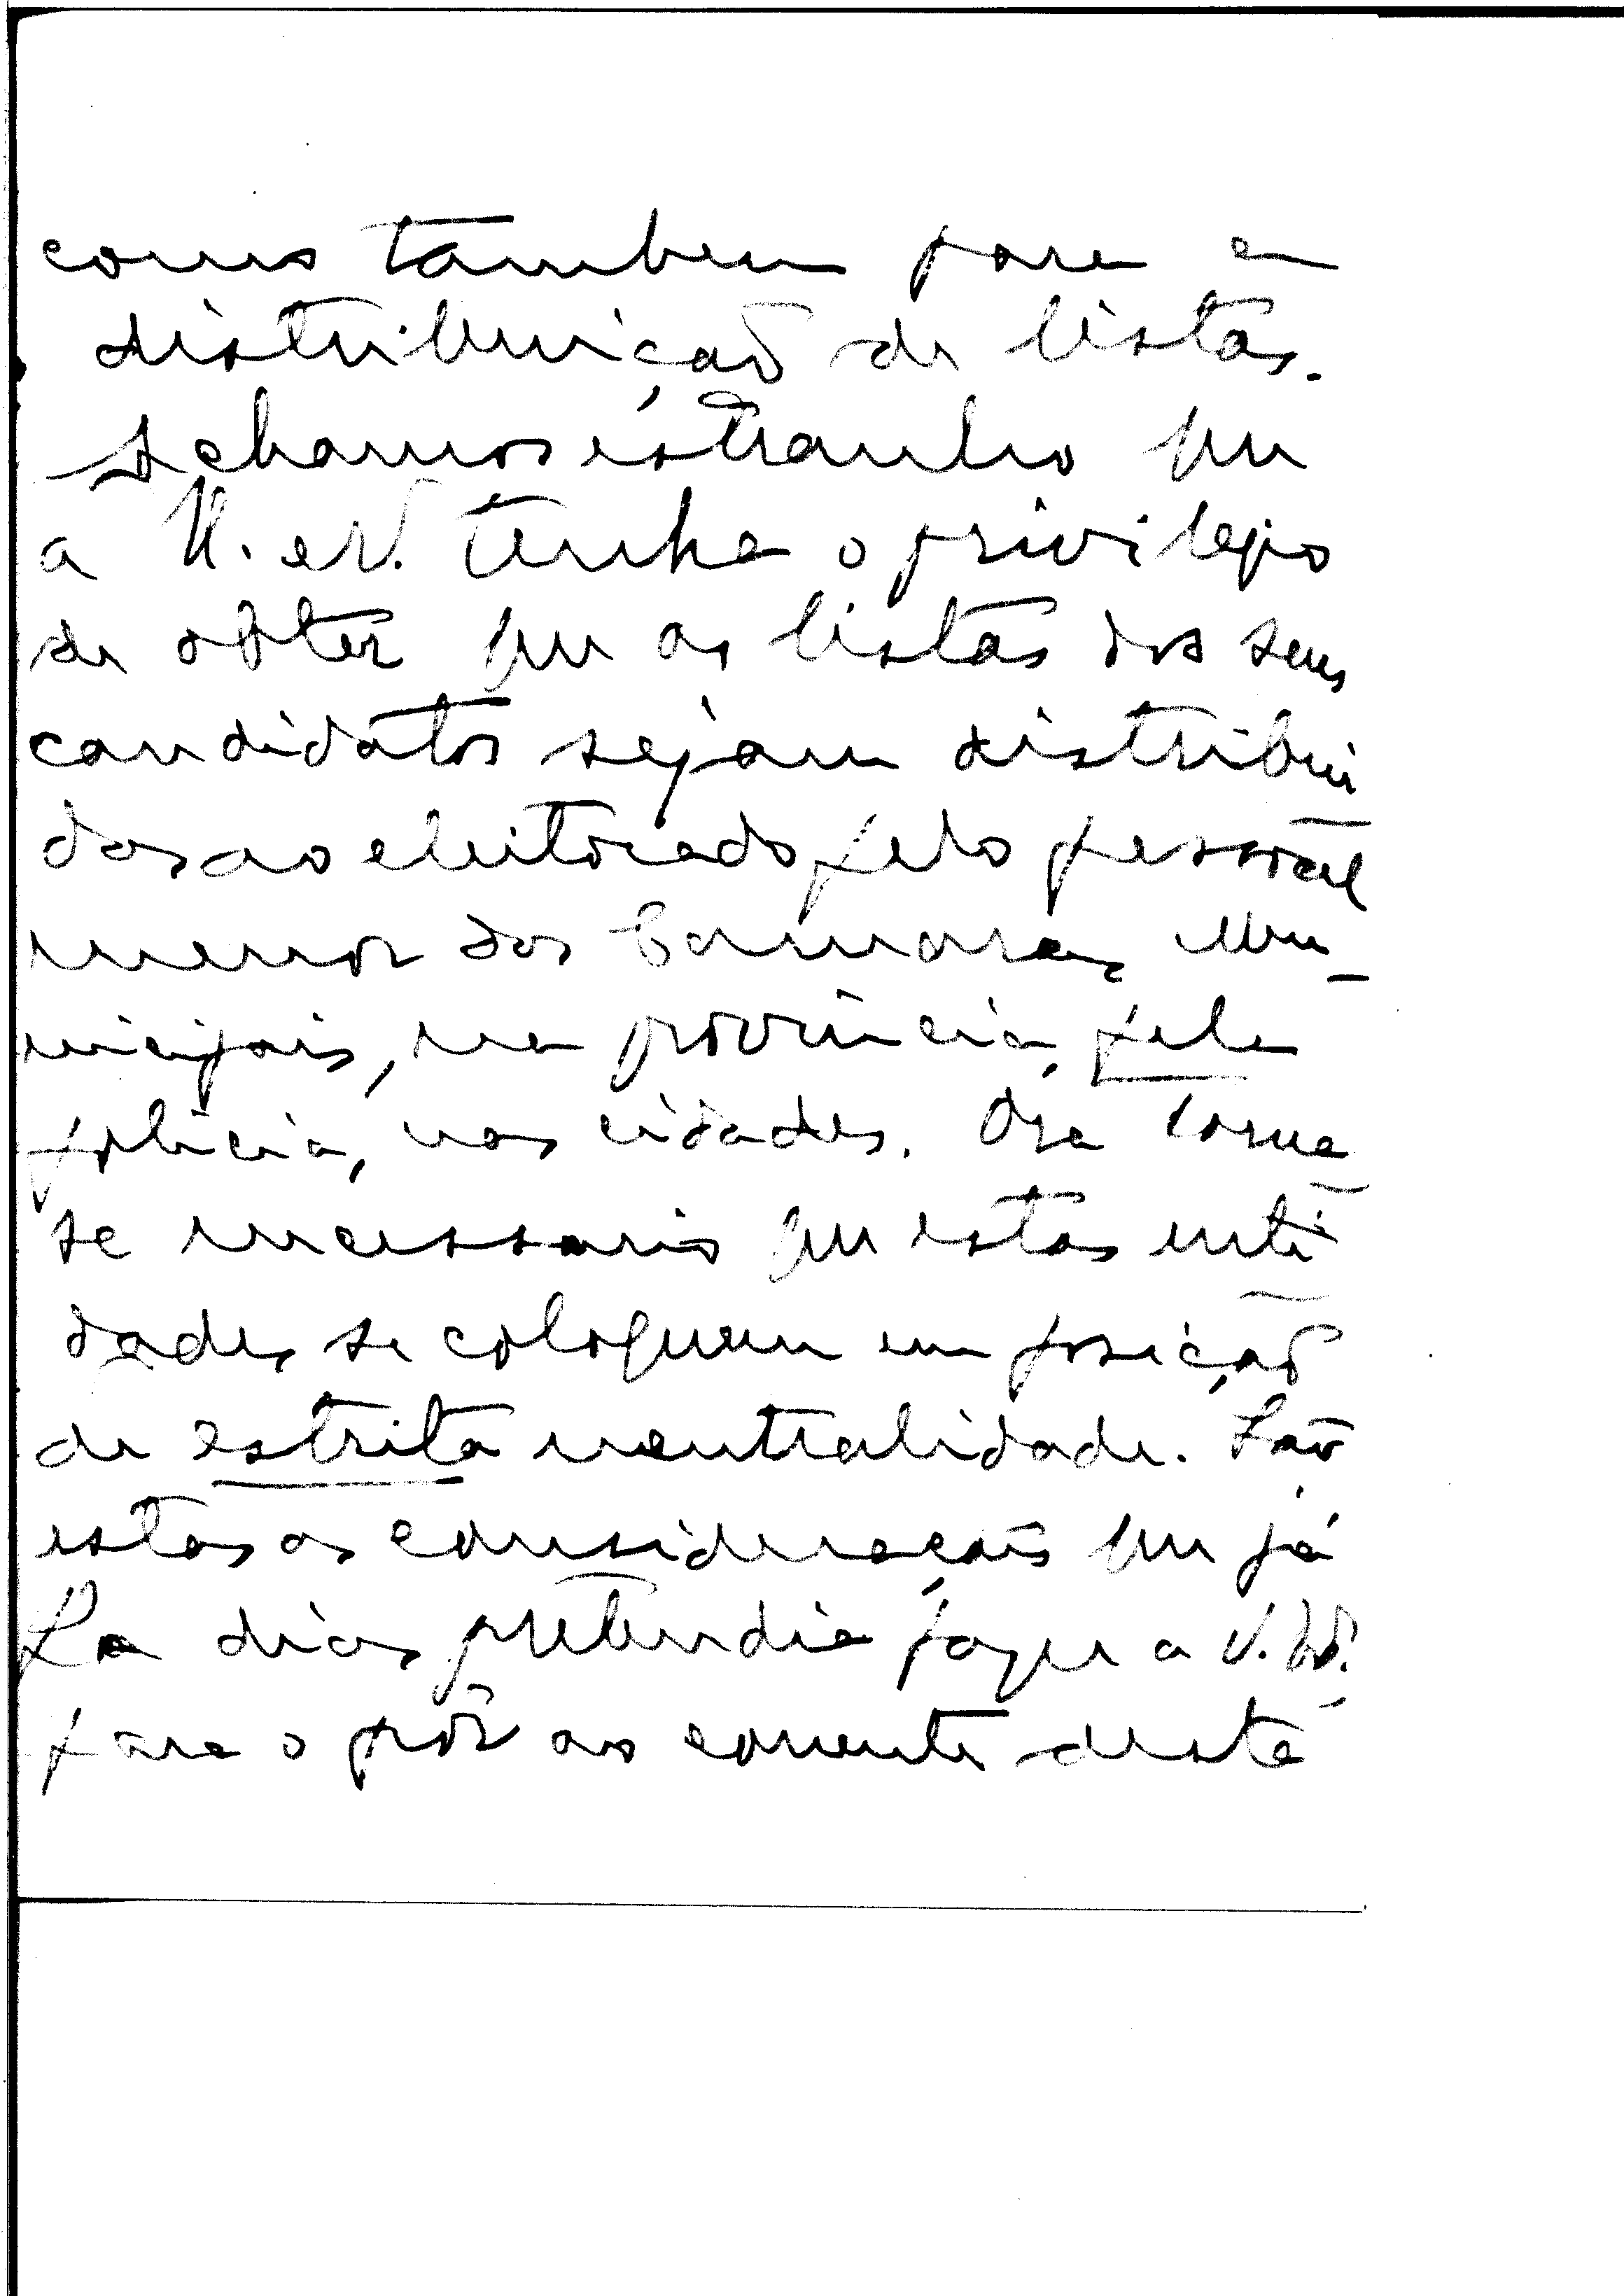 como tambem para a
distribuição de listas.
Achamos estranho que
a U. N. tenha o privilegio
de obter que as listas dos seus
candidatos sejam distribui
das ao eleitorado pelo pessoal
menor das Camaras Mu-
nicipais, na provincia, pela
policia, nas cidades. Ora torna
se necessario que estas enti-
dades se coloquem em posição
de estrita neutralidade. São
estas as considerações que já
ha dias pretendia fazer a V. Exª.
para o pôr ao corrente desta